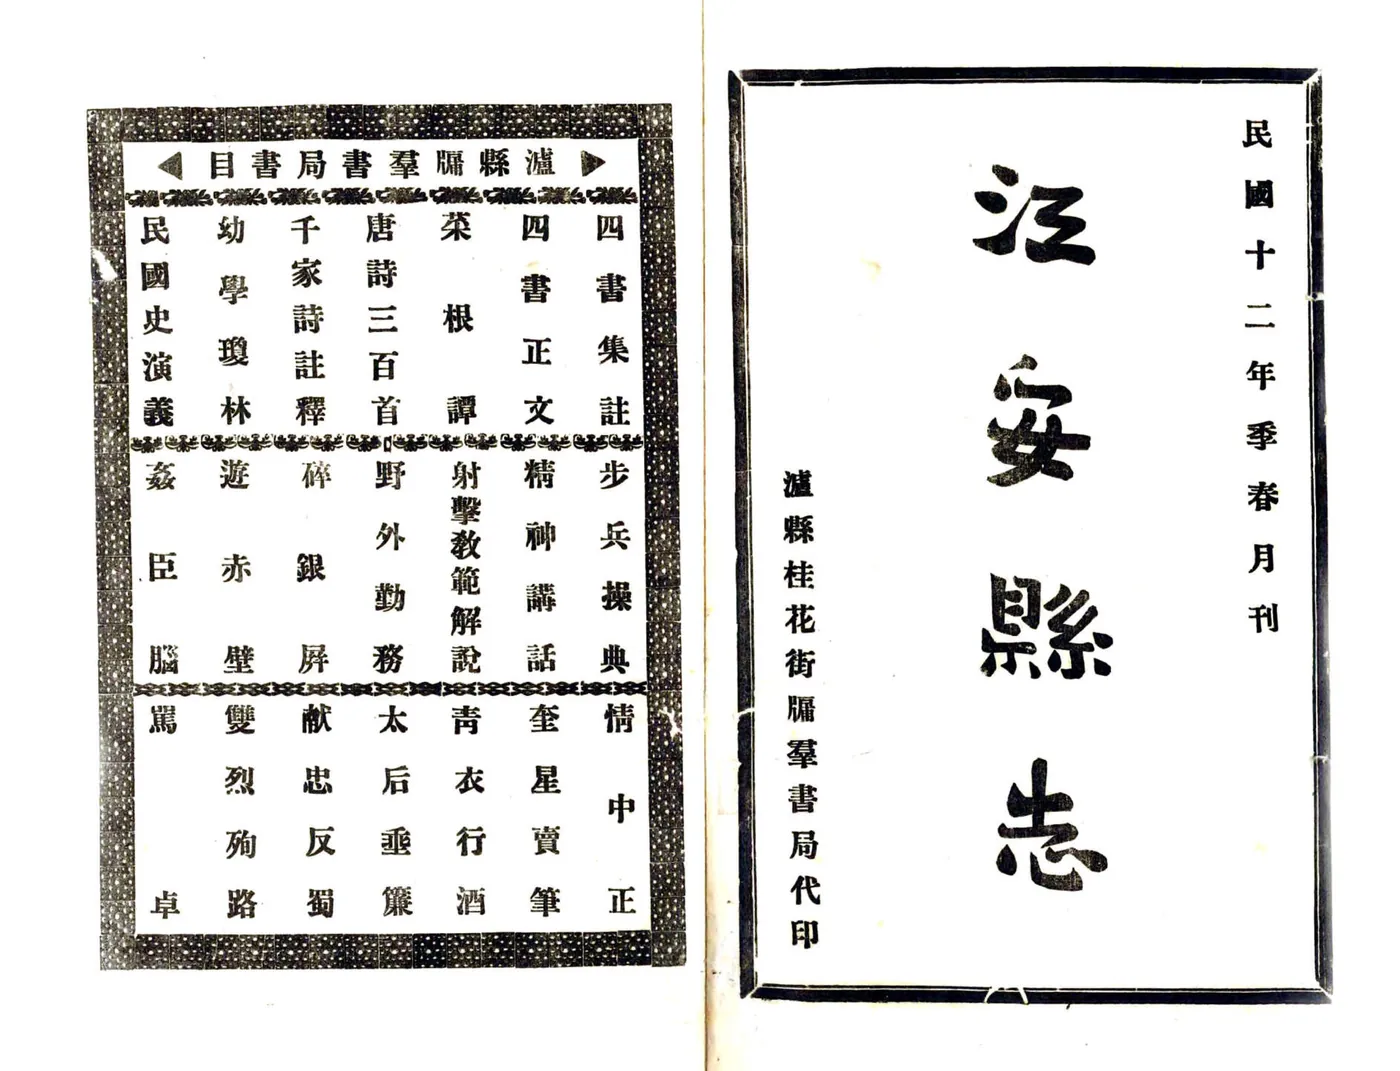 民國十二年季春月刊
江安縣志
瀘縣桂花街牖羣書局代印
瀘縣牖羣書局書目
四書集註
四書正文
菜根譚
唐詩三百首
千家詩註釋
幼學瓊林
民國史演義
步兵操典
精神講話
射擊教範解說
野外勤務
碎銀屏
遊赤壁
姦臣腦
情中正
奎星賣筆
青衣行酒
太后垂簾
献忠反蜀
雙烈殉路
罵卓